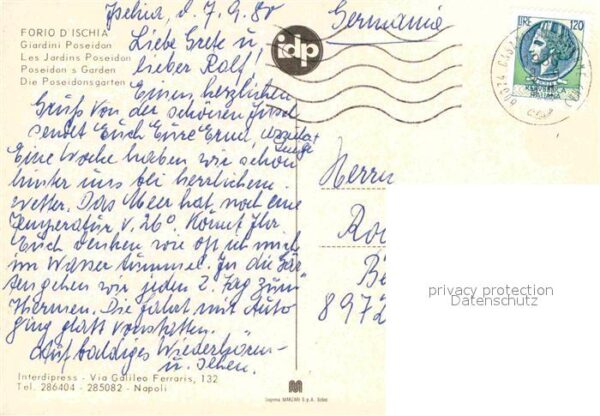 Ischia, d. 7.9.80
Germania
FORIO D'ISCHIA
Giardini Poseidon
Les Jardins Poseidon
Poseidon s Garden
Die Poseidonsgarten
idp
LIRE 120
Liebe Grete u.
lieber Rolf!
Einen herzlichen
Gruß von der schönen Insel
sendet Euch Eure Erna
Eine Woche haben wir schon
hinter uns bei herrlichem
Wetter. Das Meer hat noch eine
Temperatur v. 26°. Könnt Ihr
Euch denken wie oft ich mich
im Wasser tummel. In die
gehen wir jeden 2. Tag zum
Thermen. Die Fahrt mit Auto
ging glatt vonstatten.
Auf baldiges Wiederhören
u. sehen.
Herrn
Ro
8972
privacy protection
Datenschutz
Interdipress - Via Galileo Ferraris, 132
Tel. 286404 - 285082 - Napoli